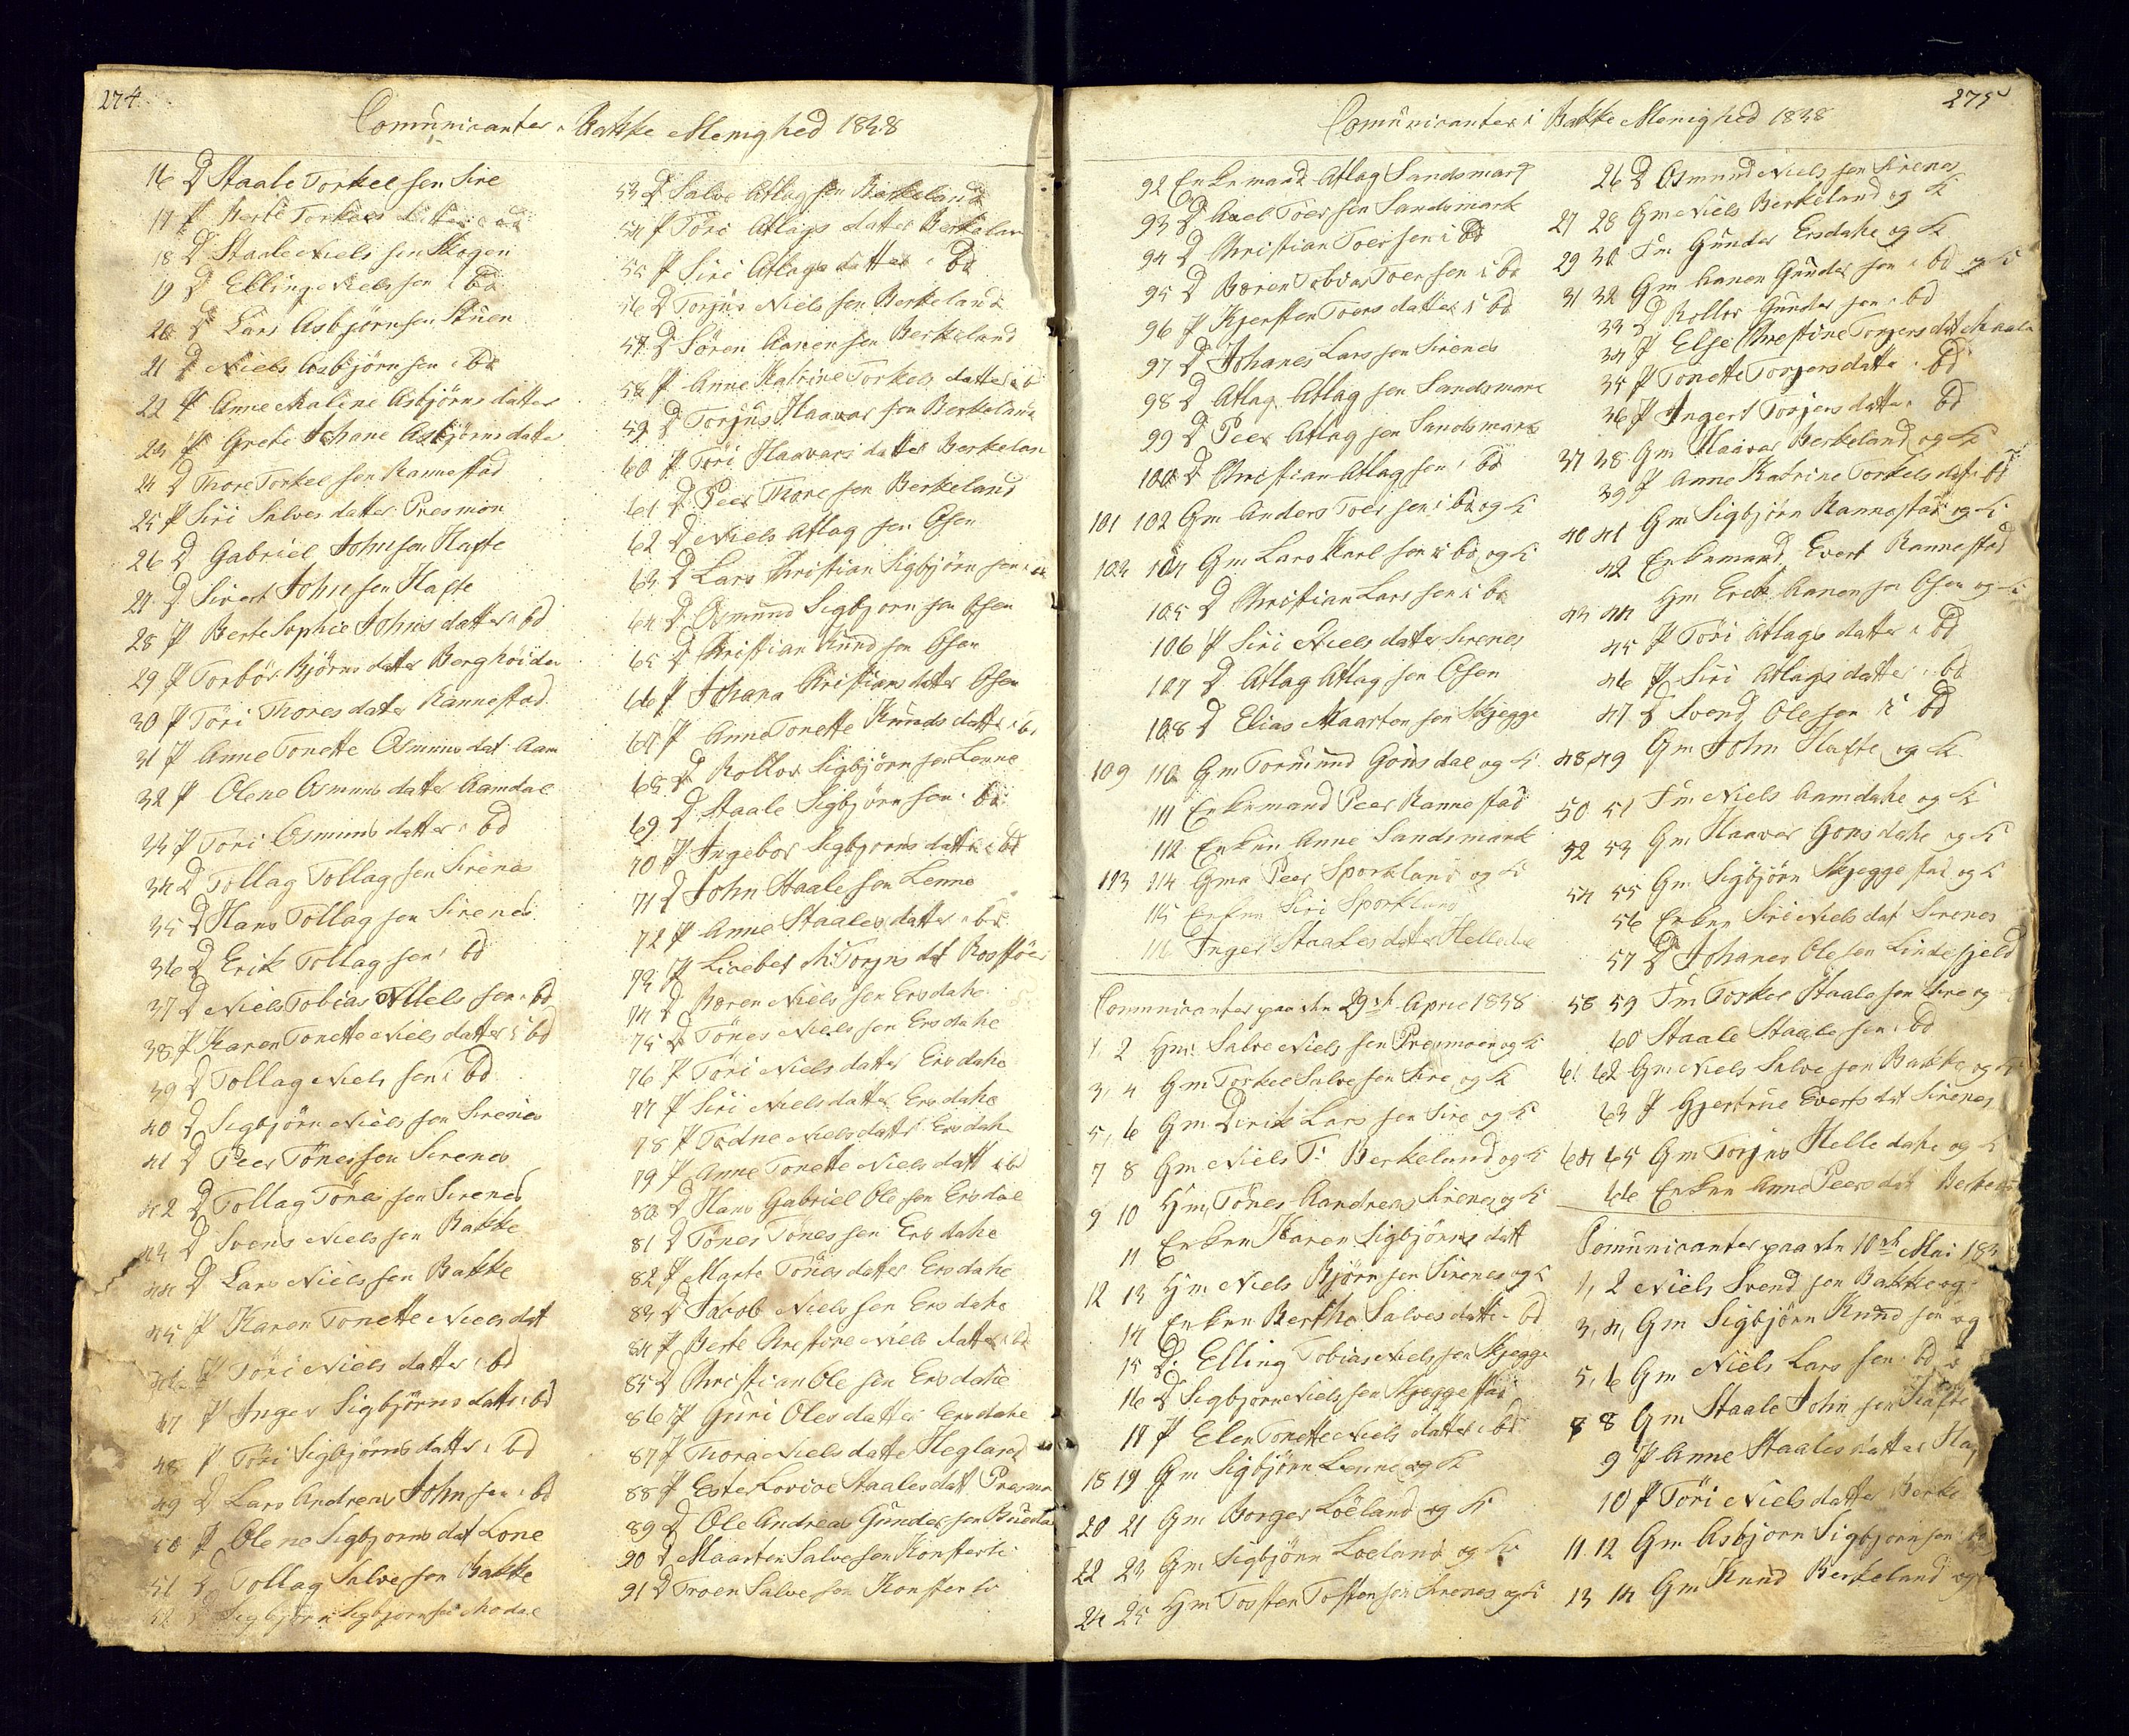 274.
Comunicanter i Bakke Menighed 1838
16 D Staale Torkelsen Sire
17 P Berte Torkels datter i bd
18 D Staale Nielssen Skogen
19 D Elling Nielssen i bd
20 D Lars Asbjörnsen Stuen
21 D Niels Asbjörnsen i bd
22 P Anne Maline Asbjörns datter
23 P Grete Johane Asbjörns datte
24 D Thore Torkelsen Rannestad
25 P Siri Salves datter Presmon
26 D Gabriel Johnsen Hafte
27 D Sivert Johnsen Hafte
28 P Berte Sophie Johns datter i bd
29 P Torbör Björns datter Berghöiden
30 P Töri Thores datter Rannestad
31 P Anne Tonette Osmuns dat Aam
32 P Olene Osmuns datter Aamdal
33 P Töri Osmuns datter i bd
34 D Tollag Tollagsen Sirenes
35 D Hans Tollagsen Sirenes
36 D Erik Tollagsen i bd
37 D Niels Tobias Nielssen i bd
38 P Karen Tonette Niels datter i bd
39 D Tollag Nielssen i bd
40 D Sigbjörn Nielssen Sirenes
41 D Peer Tönessen Sirenes
42 D Tollag Tönessen Sirenes
43 D Svens Nielssen Bakke
44 D Lars Nielssen Bakke
45 P Karen Tonette Niels dat
46 P Töri Niels datter i bd
47 P Inger Sigbjörns datte i bd
48 P Töri Sigbjörns datter i bd
49 D Lars Andreas Johnsen i bd
50 P Olene Sigbjorns dat Lone
51 D Tollag Salvesen Bakke
52 D Sigbjörn Sigbjornsen Modal
53 D Salve Atlagsen Berkeland
54 P Töri Atlags datter Berkelan
55 P Siri Atlags datter i bd
56 D Torjus Nielssen Berkeland
57 D Sören Aanensen Berkeland
58 P Anne Katrine Torkels datter i bd
59 D Torjus Haavarsen Berkeland
60 P Töri Haavars datter Berkelan
61 D Peer Thoresen Berkeland
62 D Niels Atlagsen Osen
63 D Lars Christian Sigbjörnsen i bd
64 D Osmund Sigbjornsen Osen
65 D Kristian Knudsen Osen
66 P Johana Kristians datter Osen
67 P Anne Tonette Knuds datte i bd
68 D Rollov Sigbjörnsen Lenne
69 D Staale Sigbjörnsen i bd
70 P Ingebor Sigbjorns datte i bd
71 D John Staalesen Lenne
72 P Anne Staales datter i bd
73 P Lisebet M: Torjus dat
74 D Boren Nielssen Ersdahe
75 D Tönes Nielssen Ersdahe
76 P Töri Niels datter Ersdahe
77 P Siri Niels datter Ersdahe
78 P Todne Niels datte Ersdah
79 P Anne Tonette Niels datt i bd
80 D Hans Gabriel Olesen Ersdal
81 D Tönes Tönessen Ersdahe
82 P Marte Tönes datter Ersdahe
83 D Jacob Nielssen Ersdahe
84 P Berte Krestine Niels datter i bd
85 D Christian Olesen Ersdahe
86 P Guri Oles datter Ersdahe
87 P Thora Niels datte Hegland
88 P Ester Lovise Staales datt Presmo
89 D Ole Andreas Gundersen
90 D Maarten Salvesen Konsterli
91 D Troen Salvesen Konsterli
275
Comunicanter i Bakke Menighed 1838
92 Enkemand Atlag Sandsmark
93 D Axel Toersen Sandsmark
94 D Christian Toersen i bd
95 D Boren Tobias Toersen i bd
96 P Kjersten Toers datter i bd
97 D Johanes Larssen Sirenes
98 D Atlag Atlagsen Sandsmark
99 D Peer Atlagsen Sandsmark
100 D Christian Atlagsen i bd
101 102 Gm Anders Toersen i bd og K
103 104 Gm Lars Karlsen i bd og K
105 D Christian Larssen i bd
106 P Siri Niels datter Sirenes
107 D Atlag Atlagsen Osen
108 D Elias Maartensen Skjegge
109 110 Gm Tormund Gonsdal og K
111 Enkemand Peer Rannestad
112 Enken Anne Sandsmark
113 114 Gm Peer Sporkland og K
115 Enken Siri Sporkland
116 Inger Staales dater Helledal
Comunicanter paa den 29de April 1838
1, 2 Gm: Salve Nielssen Presmoen og K
3, 4 Gm Torkel Salvesen Sire og K
5, 6 Gm Dirik Larssen Sire og K
7 8 Gm Niels T: Berkeland og K
9 10 Gm Tönes Aandreas Sirenes og K
11 Enken Karen Sigbjörns datt
12 13 Gm Niels Björnsen Sirenes og K
14 Enken Bertha Salves datte i bd
15 D. Elling Tobias Nielssen Skjegge
16 D Sigbjorn Nielssen Skjeggestad
17 P Elen Tonette Niels datter i bd
18 19 Gm Sigbjörn Lenne og K
20 21 Gm Borger Löeland og K
22 23 Gm Sigbjörn Loeland og K
24 25 Gm Tosten Tostensen Sirenes og K
26 D Osmund Nielssen Sirenes
27 28 Gm Niels Berkeland og K
29 30 Gm Gunder Ersdahe og K
31 32 Gm Aanen Gundersen i bd og K
33 D Rollov Gundersen i bd
34 P Else Chrestine Torjers dat
35 P Tonette Torjers datte i bd
36 P Ingert Torjers datte i bd
37 38 Gm Haavar Berkeland og K
39 P Anne Katrine Torkels dat i bd
40 41 Gm Sigbjörn Rannestad og K
42 Enkemand Evert Rannestad
43 44 Gm Erik Aanensen Osen og K
45 P Töri Atlags datter i bd
46 P Siri Atlags datter i bd
47 D Svend Olesen i bd
48, 49 Gm John Hafte og K
50 51 Gm Niels Aamdahe og K
52 53 Gm Haavar Gonsdahe og K
54 55 Gm Sigbjörn Skjeggestad og K
56 Enken Siri Niels dat Sirenes
57 D Johanes Olesen Lindefjeld
58 59 Gm Torkel Staalesen Sire og
60 Staale Staalesen i bd
61 62 Gm Niels Salvesen Bakke og K
63 P Gjertrue Everts dat Sirenes
64 65 Gm Torjus Helledahe og K
66 Enken Anne Peers dat
Comunicanter paa den 10de Mai 183
1, 2 Niels Svendsen Bakke og
3, 4, Gm Sigbjörn Knudsen og
5, 6 Gm Niels Larssen i bd
7 8 Gm Staale Johnsen Hafte
9 P Anne Staales datter Haf
10 P Töri Niels datter Berke
11 12 Gm Asbjorn Sigbjornsen
13 14 Gm Knud Berkeland og